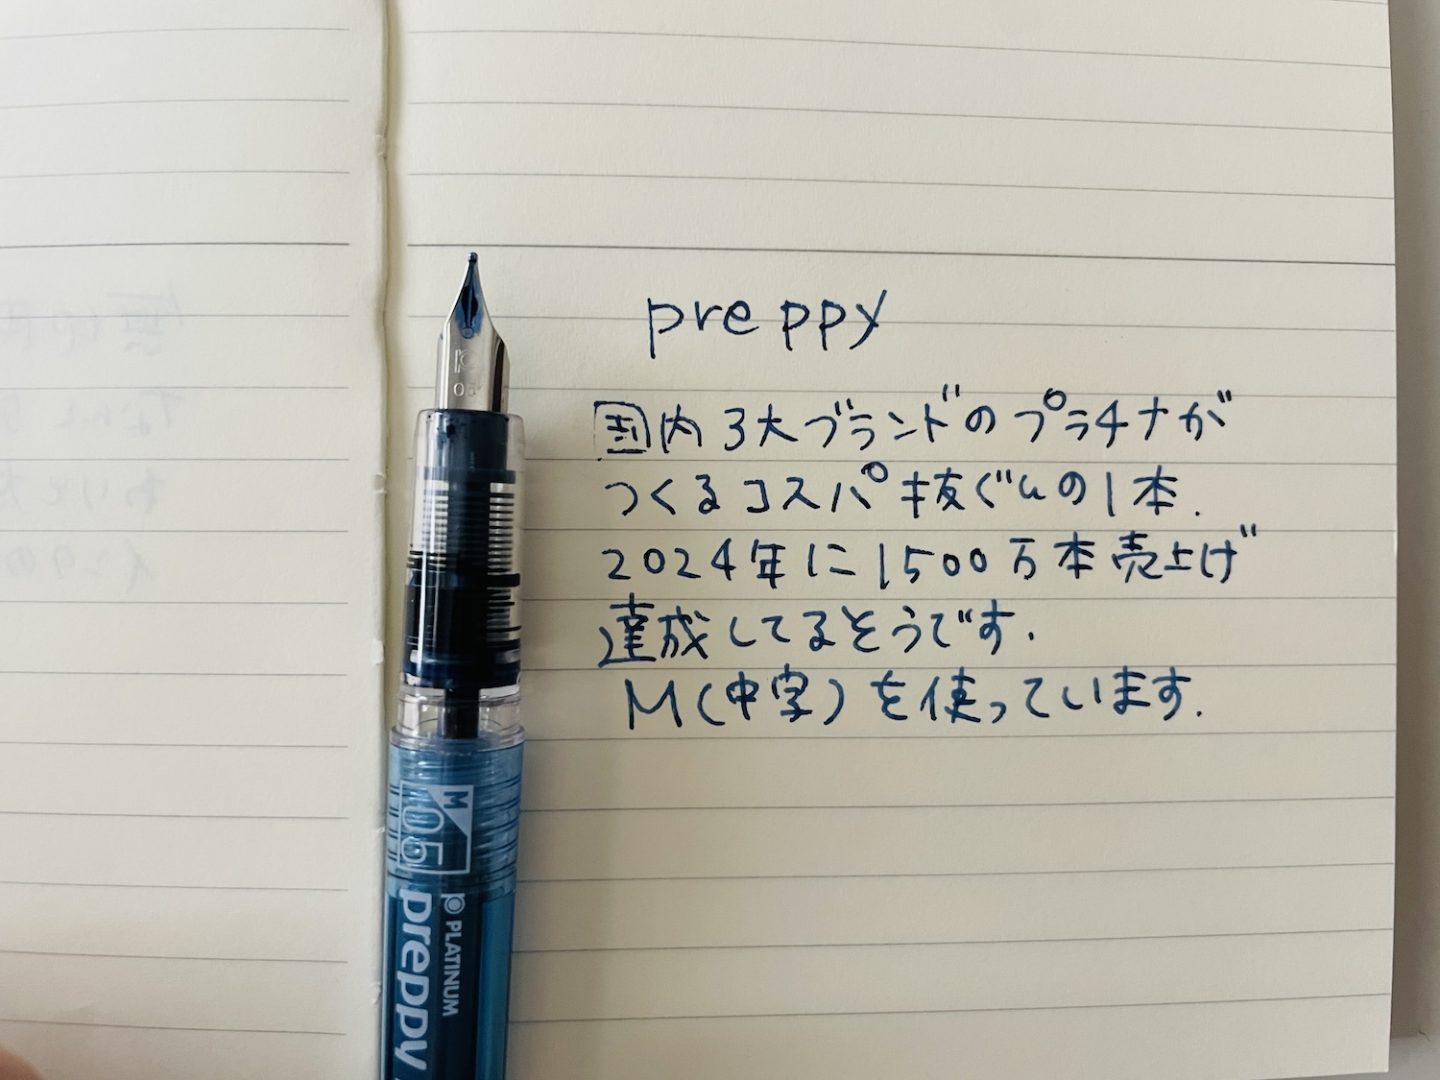 preppy
国内3大ブランドのプラチナが
つくるコスパ抜ぐんの1本.
2024年に1500万本売上げ
達成してるそうです.
M(中字)を使っています.
M
05
PLATINUM
preppy